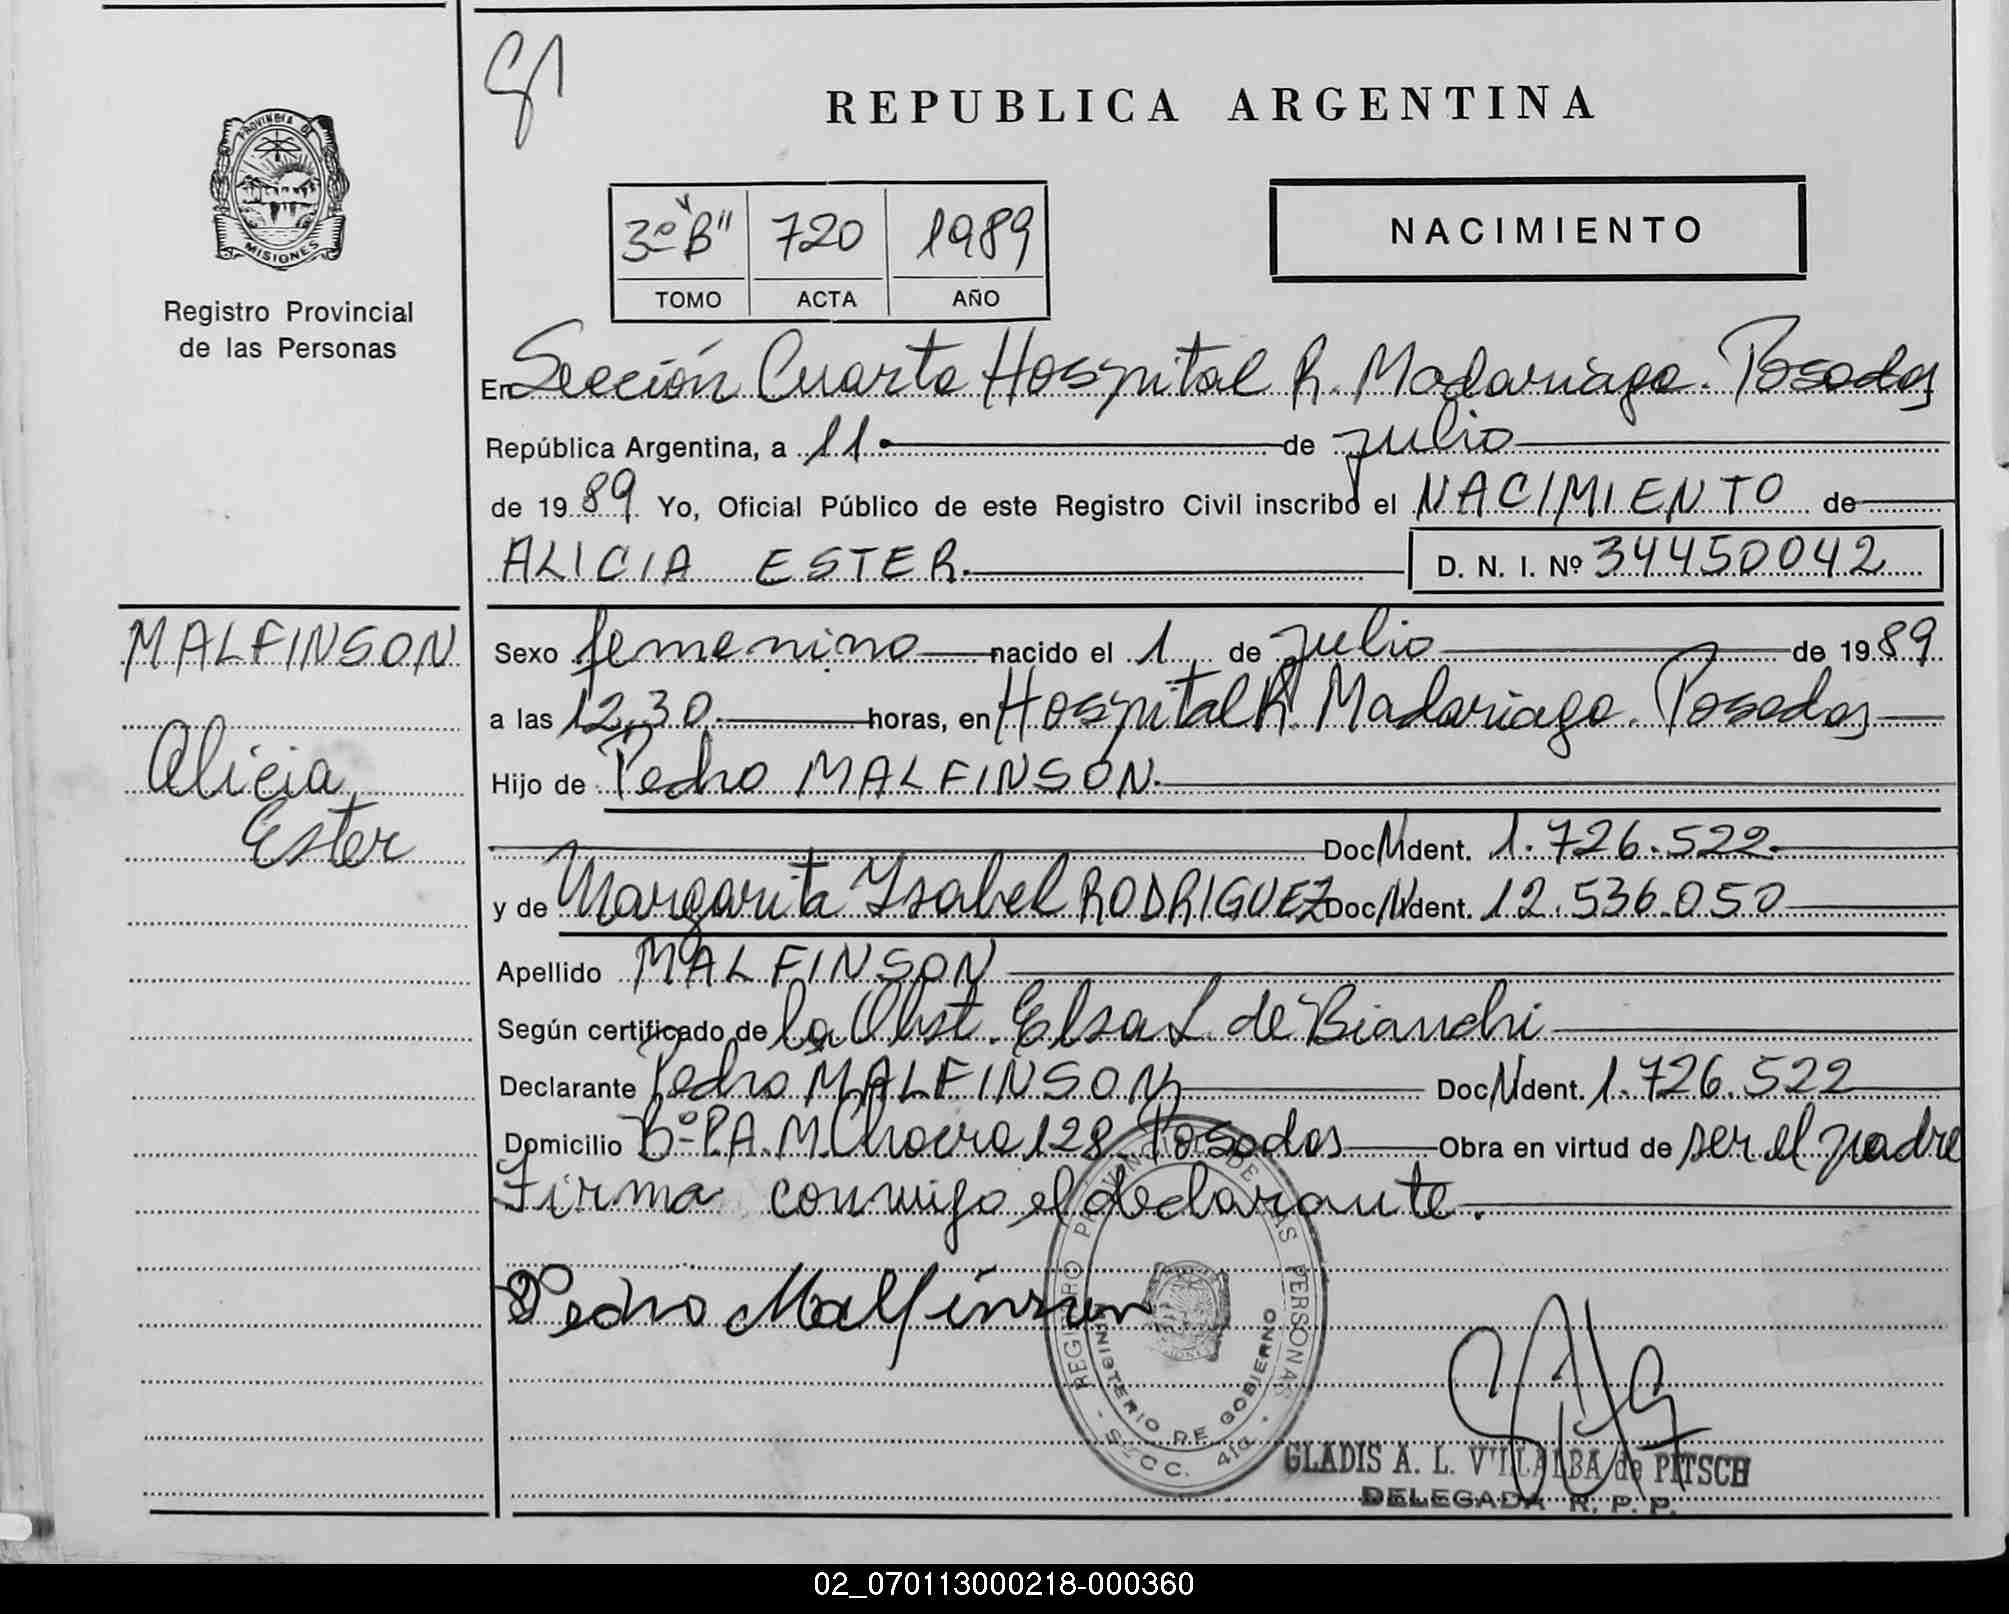 REPUBLICA ARGENTINA
PROVINCIA DE
MISIONES
Registro Provincial
de las Personas
3º "B" 720 1989
TOMO ACTA AÑO
NACIMIENTO
En Sección Cuarta Hospital R. Madariaga. Posadas
República Argentina, a 11 de julio
de 1989 Yo, Oficial Público de este Registro Civil inscribo el NACIMIENTO de
ALICIA ESTER. D. N. I. Nº 34450042
MALFINSON
Alicia
Ester
Sexo femenino nacido el 1 de julio de 1989
a las 12,30 horas, en Hospital R. Madariaga. Posadas
Hijo de Pedro MALFINSON.
Doc. Ident. 1.726.522.
y de Margarita Ysabel RODRIGUEZ Doc. Ident. 12.536.050
Apellido MALFINSON
Según certificado de la Obst. Elsa L. de Bianchi
Declarante Pedro MALFINSON Doc. Ident. 1.726.522
Domicilio Bº P.A.M. Chacra 128 Posadas Obra en virtud de ser el padre
Firma conmigo el declarante.
Pedro Malfinson
REGISTRO PROVINCIAL DE LAS PERSONAS
MINISTERIO DE GOBIERNO
SECC. 4ta.
GLADIS A. L. VILLALBA de PITSCH
DELEGADA R. P. P.
02_070113000218-000360